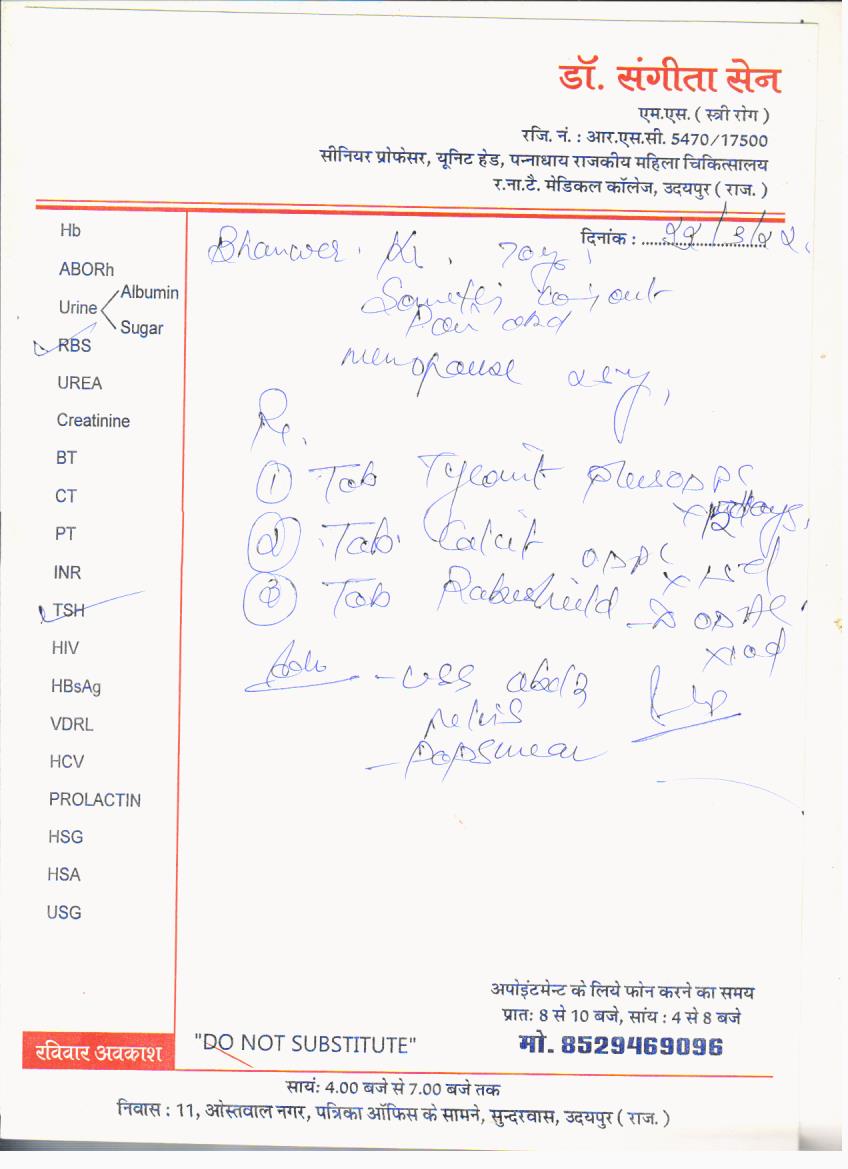 डॉ. संगीता सेन
एम.एस. ( स्त्री रोग )
रजि. नं. : आर.एस.सी. 5470/17500
सीनियर प्रोफेसर, यूनिट हेड, पन्नाधाय राजकीय महिला चिकित्सालय
र.ना.टै. मेडिकल कॉलेज, उदयपुर ( राज. )
दिनांक :
Hb
ABORh
Urine
Albumin
Sugar
RBS
UREA
Creatinine
BT
CT
PT
INR
TSH
HIV
HBsAg
VDRL
HCV
PROLACTIN
HSG
HSA
USG
Bhanwer. Kr. 70y
out
Pain abd
menopause
Rx.
① Tab
② Tab.
③ Tab Rabeshield
Adv - USS abd &
pelvis
- Papsmear
अपोइंटमेन्ट के लिये फोन करने का समय
प्रातः 8 से 10 बजे, सांय : 4 से 8 बजे
मो. 8529469096
रविवार अवकाश
"DO NOT SUBSTITUTE"
सायंः 4.00 बजे से 7.00 बजे तक
निवास : 11, ओस्तवाल नगर, पत्रिका ऑफिस के सामने, सुन्दरवास, उदयपुर ( राज. )